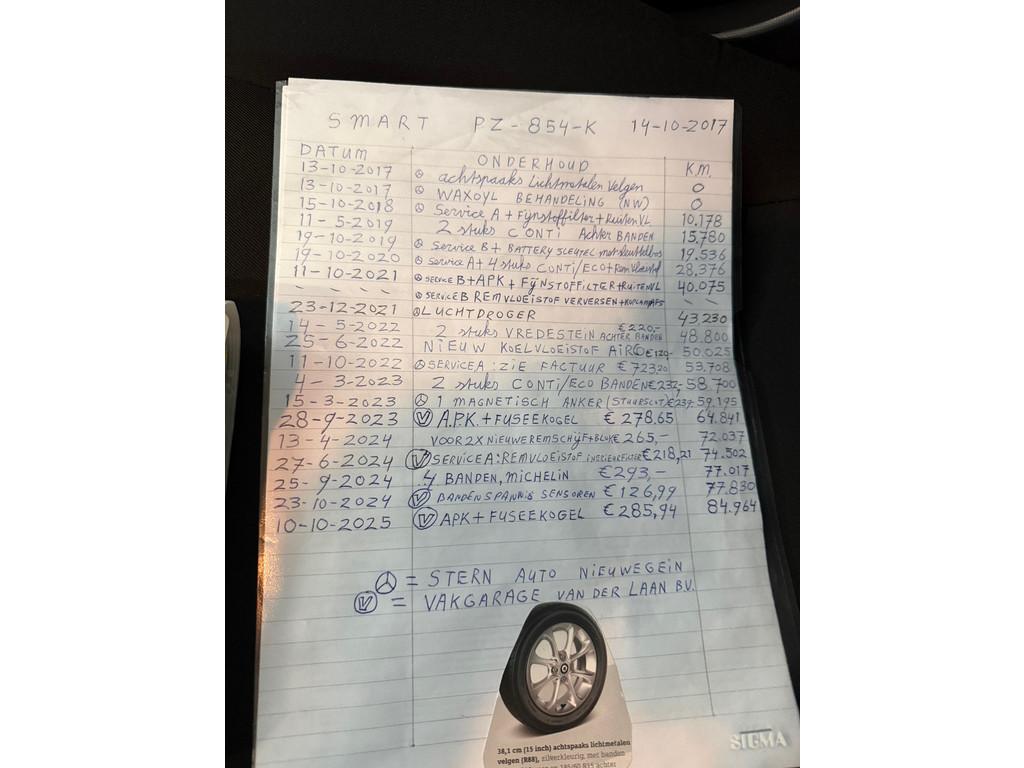 SMART PZ-854-K 14-10-2017
DATUM ONDERHOUD K.M.
13-10-2017 achtspaaks Lichtmetalen Velgen 0
13-10-2017 WAXOYL BEHANDELING (NW) 0
15-10-2018 Service A + Fijnstoffilter + RuitenVL 10.178
11-5-2019 2 stuks CONTI Achter BANDEN 15.780
19-10-2019 Service B + BATTERY SLEUTEL 19.536
19-10-2020 Service A + 4 stuks CONTI/ECO + Rem 28.376
11-10-2021 SERVICE B + APK + FIJNSTOFFILTER + RUITENVL 40.075
SERVICE B REMVLOEISTOF VERVERSEN +
23-12-2021 LUCHTDROGER 43230
14-5-2022 2 stuks VREDESTEIN ACHTER BANDEN €220,- 48.800
25-6-2022 NIEUW KOELVLOEISTOF AIRCO €129- 50.025
11-10-2022 SERVICE A : ZIE FACTUUR €72320 53.708
4-3-2023 2 stuks CONTI/ECO BANDEN €232,- 58.700
15-3-2023 1 MAGNETISCH ANKER (STUURSLOT) €237- 59.195
28-9-2023 A.P.K. + FUSEEKOGEL €278.65 64.841
13-4-2024 VOOR 2X NIEUWE REMSCHIJF + BLOK €265,- 72.037
27-6-2024 SERVICE A: REMVLOEISTOF INTERIEURFILTER €218,21 74.502
25-9-2024 4 BANDEN, MICHELIN €293,- 77.017
23-10-2024 BANDENSPANNING SENSOREN €126,99 77.830
10-10-2025 APK + FUSEEKOGEL €285,94 84.964
= STERN AUTO NIEUWEGEIN
V = VAKGARAGE VAN DER LAAN B.V.
38,1 cm (15 inch) achtspaaks lichtmetalen
velgen (R88), zilverkleurig, met banden
185/60 R15 achter
SIGMA